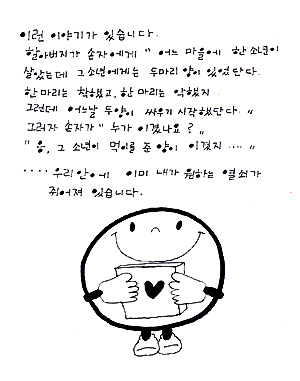 이런 이야기가 있습니다.
할아버지가 손자에게 " 어느 마을에 한 소년이
살았는데 그 소년에게는 두마리 양이 있었단다.
한마리는 착했고, 한 마리는 악했지.
그런데 어느날 두양이 싸우기 시작했단다. "
그러자 손자가 " 누가 이겼나요 ? "
" 응, 그 소년이 먹이를 준 양이 이겼지 .... "
.... 우리 안에 이미 내가 원하는 열쇠가
쥐어져 있습니다.